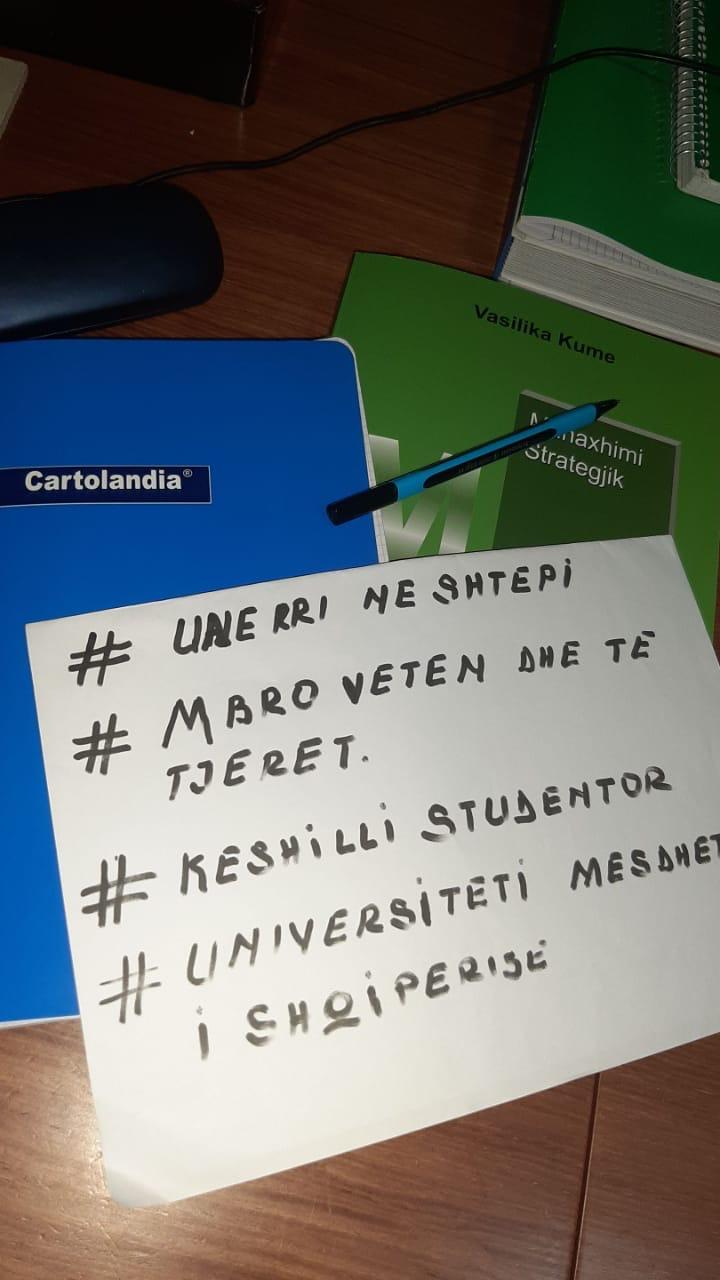 Vasilika Kume
Manaxhimi
Strategjik
Cartolandia®
# UNE RRI NE SHTEPI
# MBRO VETEN DHE TË
TJERET.
# KESHILLI STUDENTOR
# UNIVERSITETI MESDHET
I SHQIPERISË